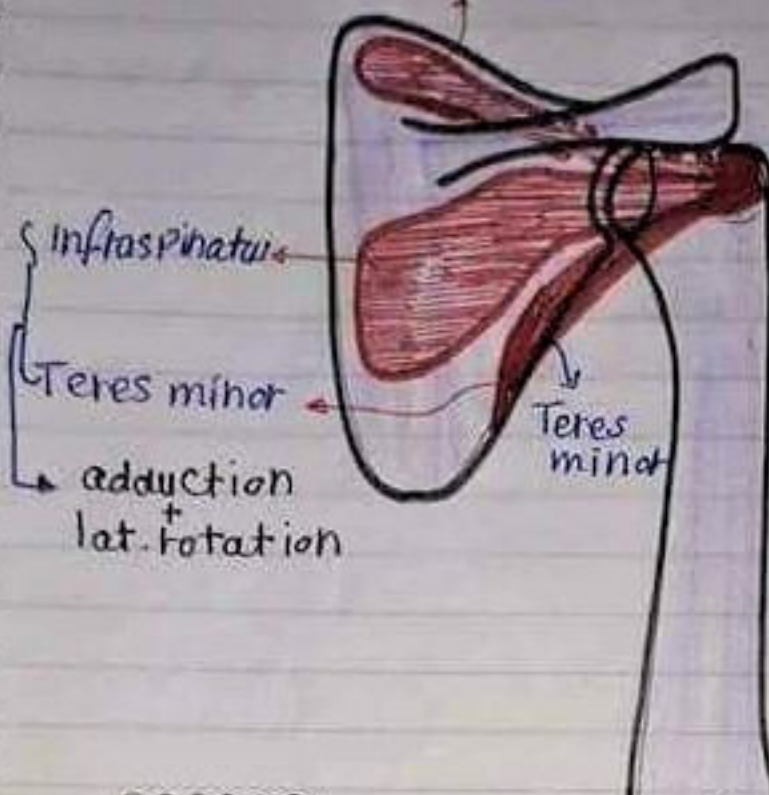 Infraspinatus
Teres minor
Teres
minor
adduction
+
lat. rotation